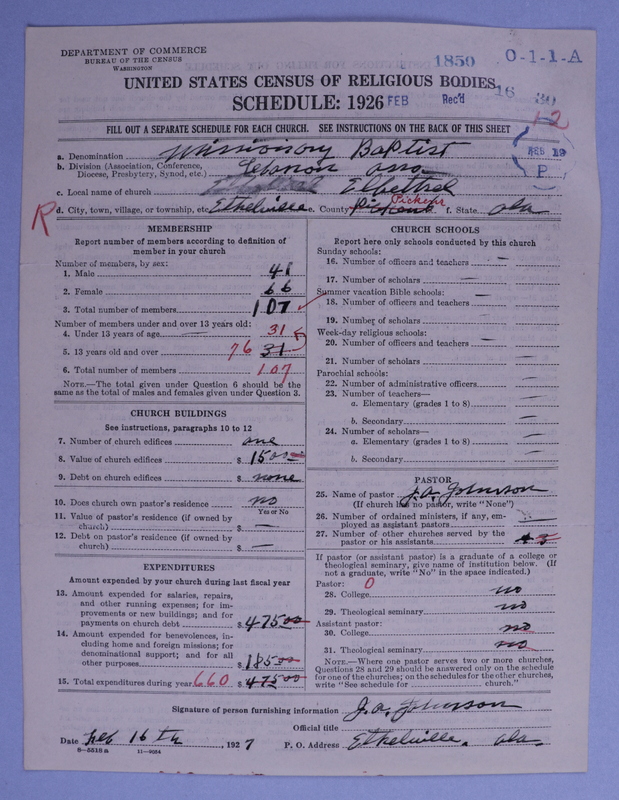 DEPARTMENT OF COMMERCE
BUREAU OF THE CENSUS
WASHINGTON
1850 0-1-1-A
UNITED STATES CENSUS OF RELIGIOUS BODIES
SCHEDULE: 1926 FEB Rec'd 16 30
12
FILL OUT A SEPARATE SCHEDULE FOR EACH CHURCH. SEE INSTRUCTIONS ON THE BACK OF THIS SHEET
FEB 19
P
a. Denomination Missionary Baptist
b. Division (Association, Conference, Diocese, Presbytery, Synod, etc.) Lebanon asso
c. Local name of church Elbethel
R
d. City, town, village, or township, etc. Ethelville e. County Pickens f. State Ala
MEMBERSHIP
Report number of members according to definition of
member in your church
Number of members, by sex:
1. Male 41
2. Female 66
3. Total number of members 107
Number of members under and over 13 years old:
4. Under 13 years of age 31
5. 13 years old and over 76 31
6. Total number of members 107
NOTE.—The total given under Question 6 should be the
same as the total of males and females given under Question 3.
CHURCH BUILDINGS
See instructions, paragraphs 10 to 12
7. Number of church edifices one
8. Value of church edifices $ 1500
9. Debt on church edifices $ none
10. Does church own pastor's residence no
Yes or No
11. Value of pastor's residence (if owned by
church) $ —
12. Debt on pastor's residence (if owned by
church) $ —
EXPENDITURES
Amount expended by your church during last fiscal year
13. Amount expended for salaries, repairs,
and other running expenses; for im-
provements or new buildings; and for
payments on church debt $ 475 00
14. Amount expended for benevolences, in-
cluding home and foreign missions; for
denominational support; and for all
other purposes $ 185 00
15. Total expenditures during year 660 $ 475 00
CHURCH SCHOOLS
Report here only schools conducted by this church
Sunday schools:
16. Number of officers and teachers —
17. Number of scholars —
Summer vacation Bible schools:
18. Number of officers and teachers —
19. Number of scholars —
Week-day religious schools:
20. Number of officers and teachers —
21. Number of scholars —
Parochial schools:
22. Number of administrative officers —
23. Number of teachers—
a. Elementary (grades 1 to 8) —
b. Secondary —
24. Number of scholars—
a. Elementary (grades 1 to 8) —
b. Secondary —
PASTOR
25. Name of pastor J. A. Johnson
(If church has no pastor, write "None")
26. Number of ordained ministers, if any, em-
ployed as assistant pastors
27. Number of other churches served by the
pastor or his assistants 3
If pastor (or assistant pastor) is a graduate of a college or
theological seminary, give name of institution below. (If
not a graduate, write "No" in the space indicated.)
Pastor: 0
28. College no
29. Theological seminary no
Assistant pastor:
30. College no
31. Theological seminary no
NOTE.—Where one pastor serves two or more churches,
Questions 28 and 29 should be answered only on the schedule
for one of the churches; on the schedules for the other churches,
write "See schedule for church."
Signature of person furnishing information J. A. Johnson
Official title
Date Feb 16th, 1927 P. O. Address Ethelville. Ala.
8—5518a 11—9084